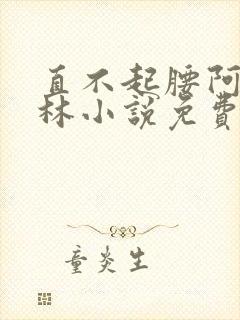 直不起腰阿
林小說免費
童炎生